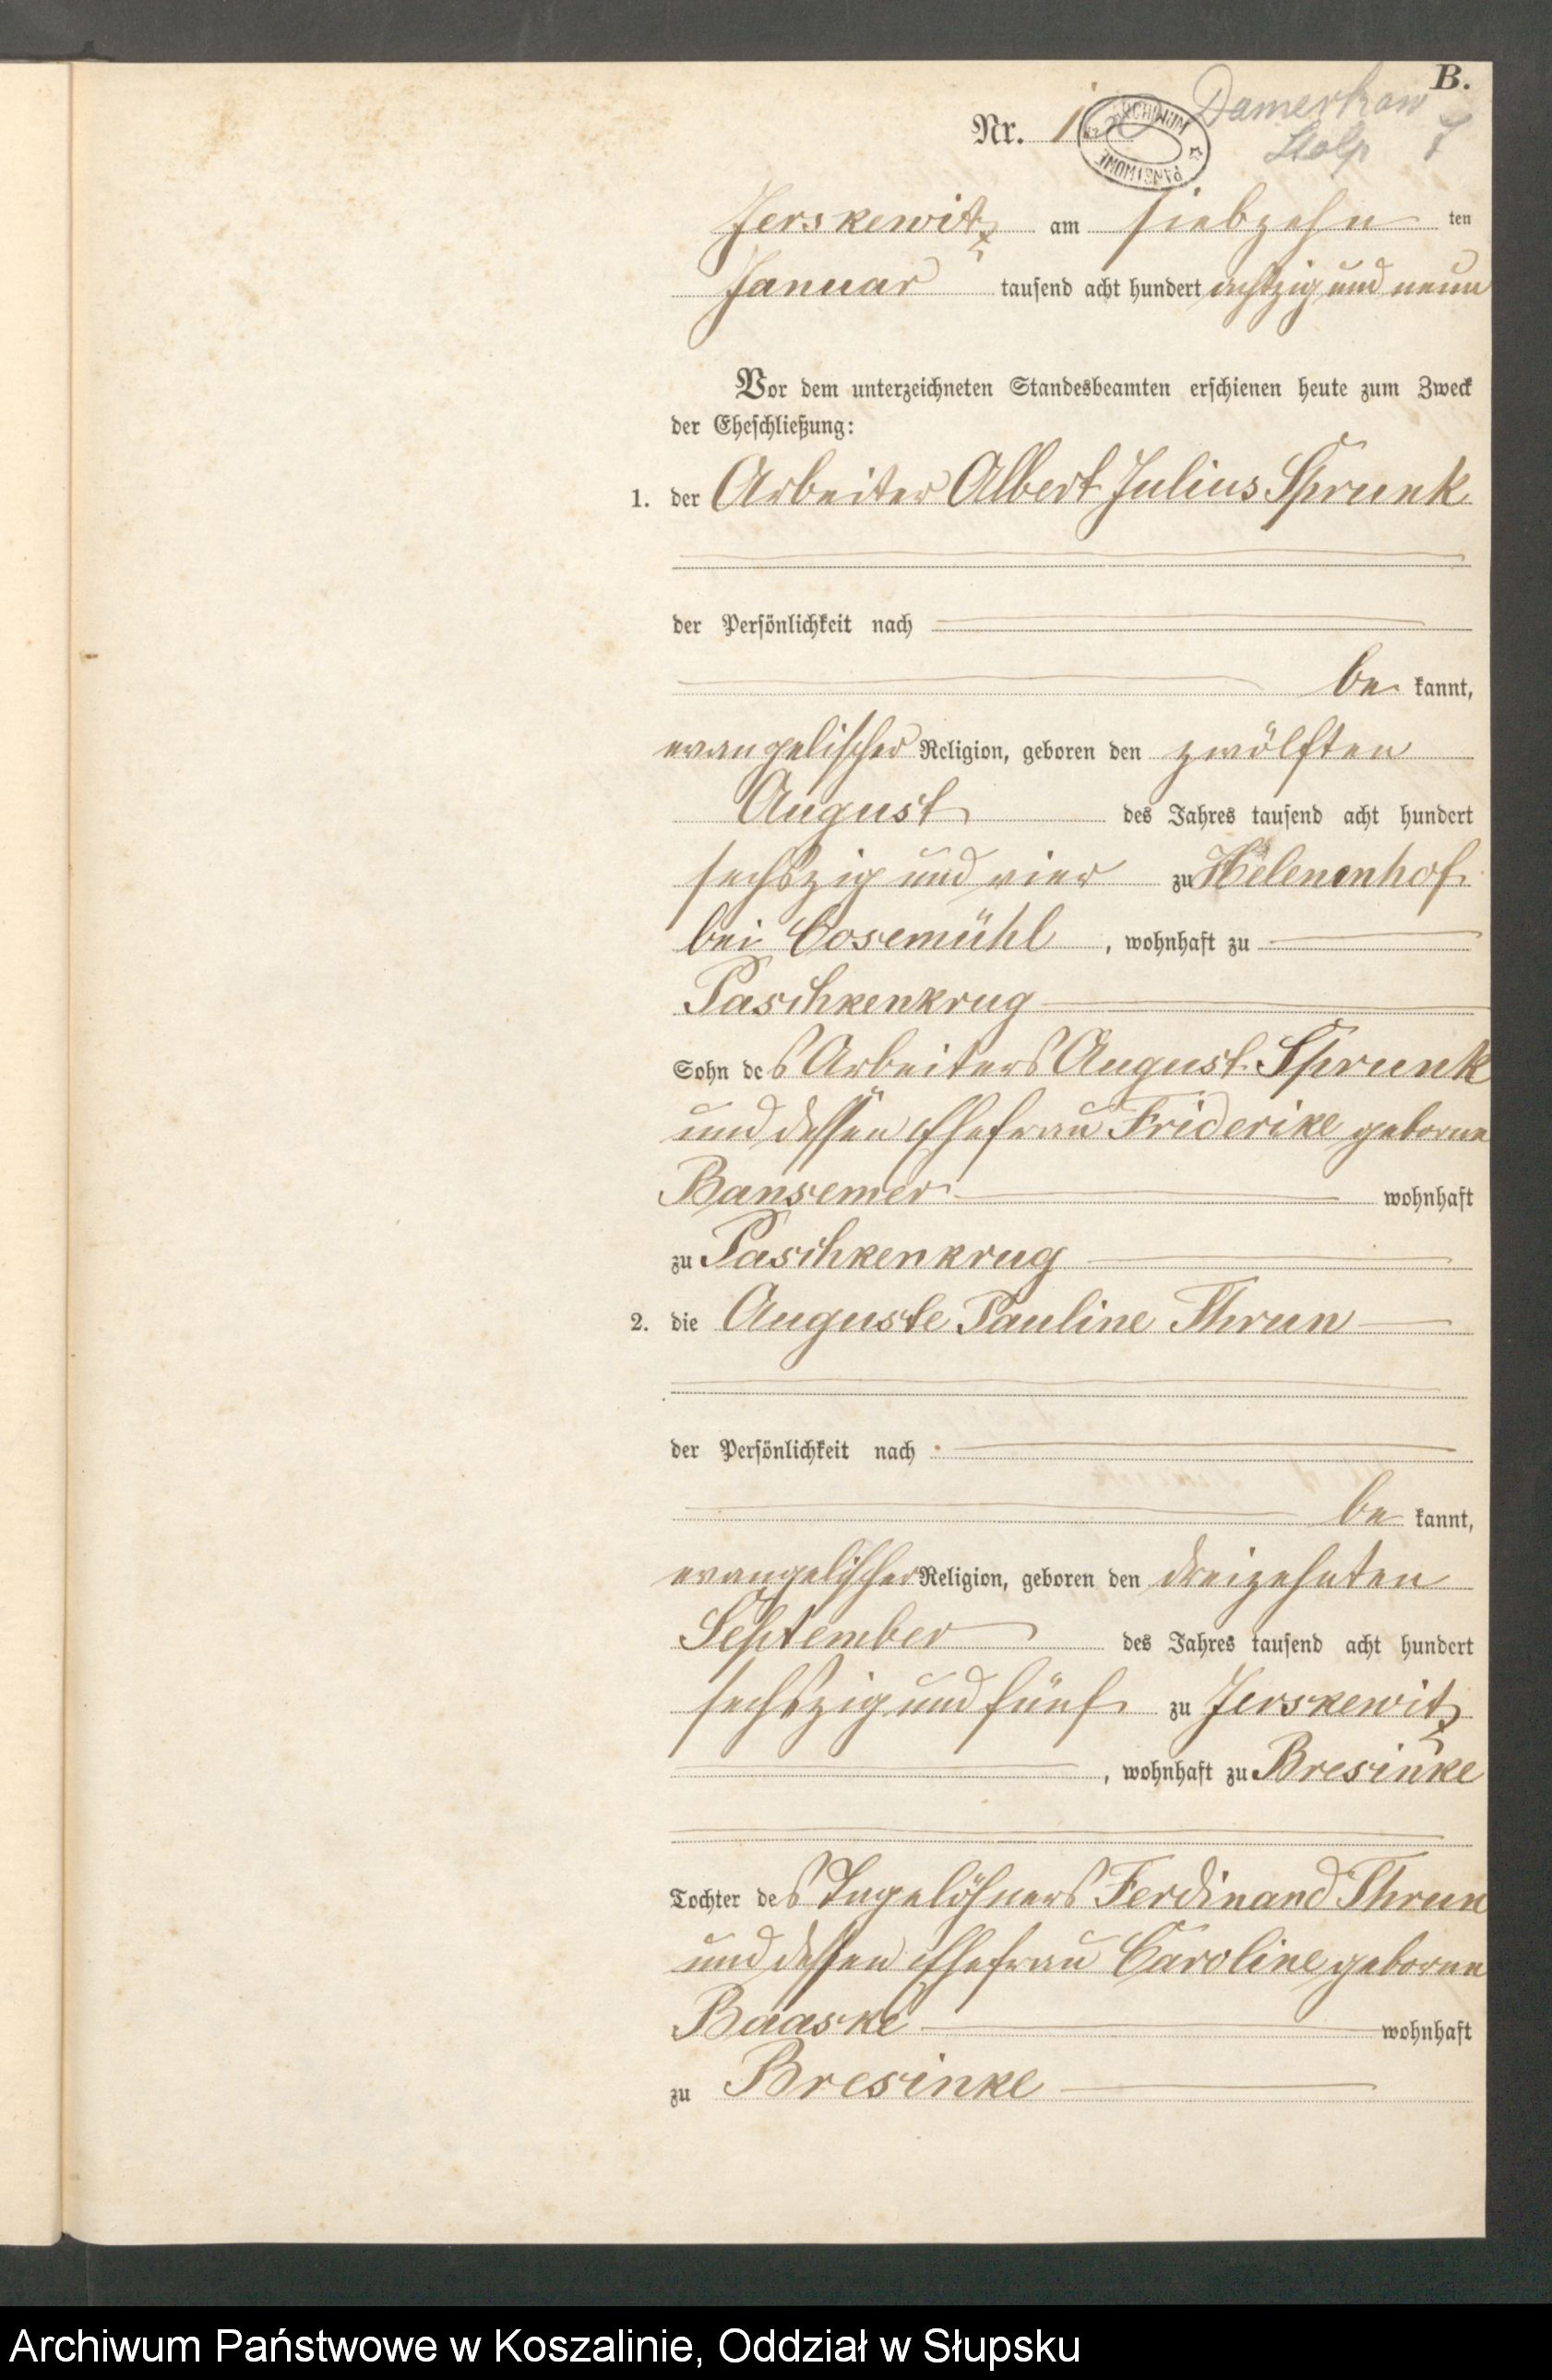 B.
Nr. 1
Damerkow
Stolp 7
ARCHIWUM PAŃSTWOWE
Jerskewitz am siebzehn ten
Januar tausend acht hundert achtzig und neun
Vor dem unterzeichneten Standesbeamten erschienen heute zum Zweck
der Eheschließung:
1. der Arbeiter Albert Julius Sprunk
der Persönlichkeit nach
be kannt,
evangelischer Religion, geboren den zwölften
August des Jahres tausend acht hundert
sechszig und vier zu Helenenhof
bei Cosemühl, wohnhaft zu
Paschkenkrug
Sohn des Arbeiters August Sprunk
und dessen Ehefrau Friderike geborne
Bansemer wohnhaft
zu Paschkenkrug
2. die Auguste Pauline Thrun
der Persönlichkeit nach
be kannt,
evangelischer Religion, geboren den dreizehnten
September des Jahres tausend acht hundert
sechszig und fünf zu Jerskewitz
, wohnhaft zu Bresinke
Tochter des Tagelöhners Ferdinand Thrun
und dessen Ehefrau Caroline geborne
Baaske wohnhaft
zu Bresinke
Archiwum Państwowe w Koszalinie, Oddział w Słupsku